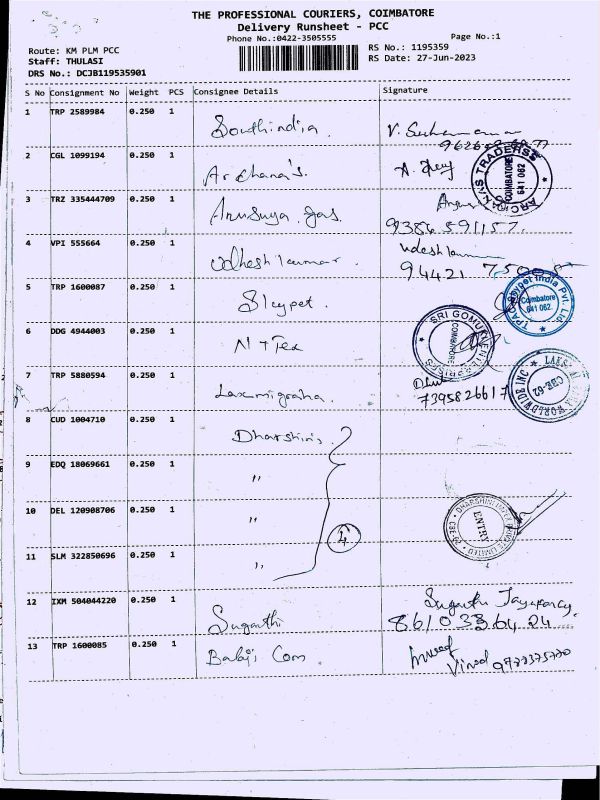 THE PROFESSIONAL COURIERS, COIMBATORE
Delivery Runsheet - PCC
Phone No.:0422-3505555
Page No.:1
Route: KM PLM PCC
RS No.: 1195359
Staff: THULASI
RS Date: 27-Jun-2023
DRS No.: DCJB119535901
S No Consignment No Weight PCS Consignee Details Signature
1 TRP 2589984 0.250 1 Southindia.
2 CGL 1099194 0.250 1 Archana's.
ARCATAS TRADERSS COIMBATORE 641 062
3 TRZ 335444709 0.250 1 Anusuya. gas.
9386591157.
4 VPI 555664 0.250 1 Udhesh kumar. Udesh kumar
94421 75005
5 TRP 1600087 0.250 1 Sleypet.
Coimbatore 641 062.
6 DDG 4944003 0.250 1 N + Tex
SRI GOMUKI ENTERPRISES COIMBATORE
7 TRP 5880594 0.250 1 Laxmigraha.
7395826617
WORLDWIDE INC CBE-62
8 CUD 1004710 0.250 1 Dharshini.
9 EDQ 18069661 0.250 1 "
10 DEL 120908706 0.250 1 "
4
ENTRY
11 SLM 322850696 0.250 1 "
12 IXM 504044220 0.250 1 Suganthi Suganthi
8610336424
13 TRP 1600085 0.250 1 Balaji Com. Vinod